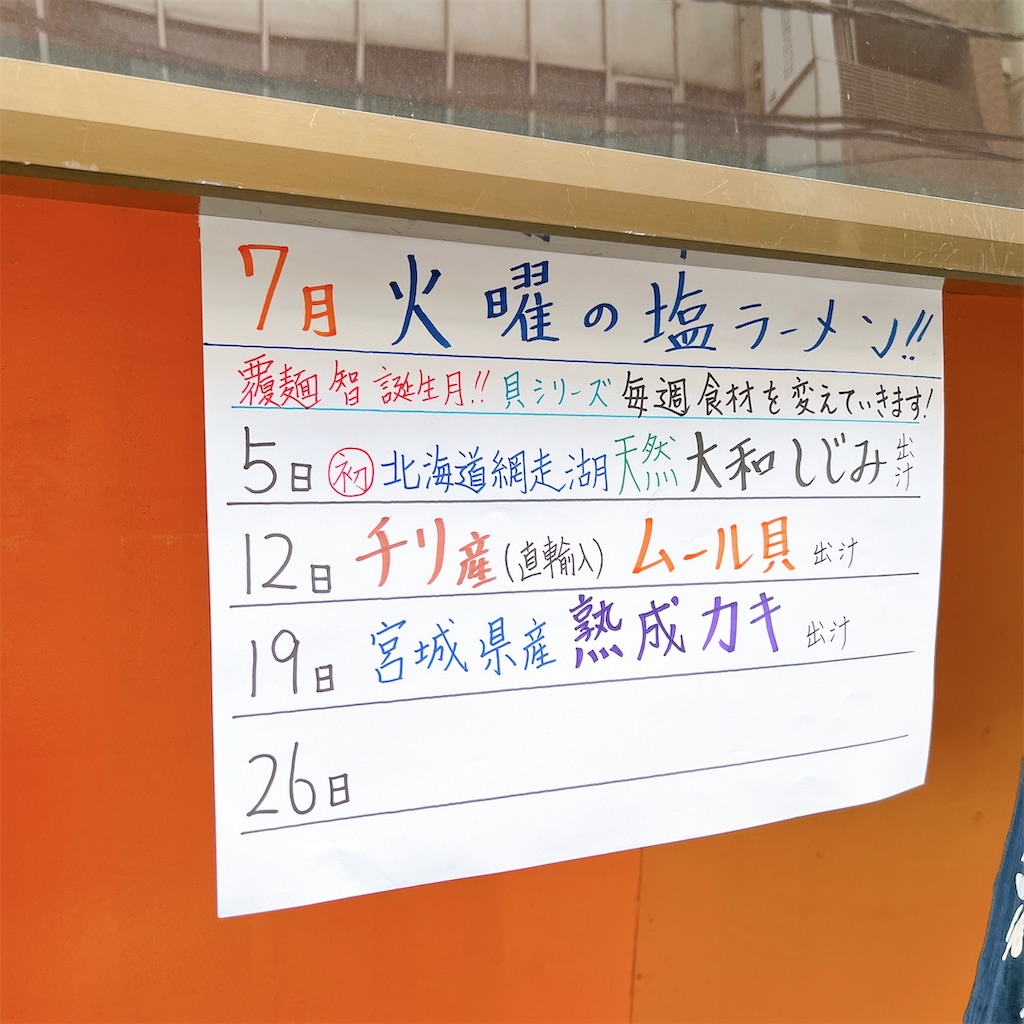 7月 火曜の塩ラーメン!!
覆麺 智 誕生月!! 貝シリーズ 毎週食材を変えていきます!
5日 ㊗初 北海道網走湖 天然 大和しじみ 出汁
12日 チリ産(直輸入) ムール貝 出汁
19日 宮城県産 熟成カキ 出汁
26日